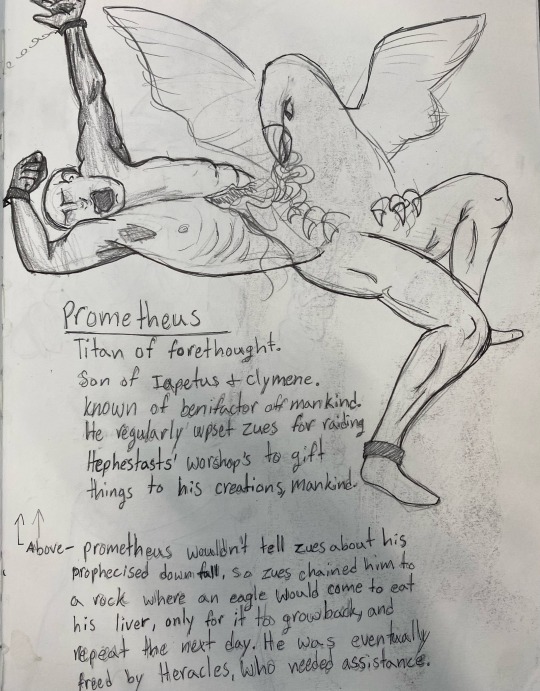 Prometheus
Titan of forethought.
Son of Iapetus & Clymene.
known of benifactor off mankind.
He regularly upset zues for raiding
Hephestasts' worshop's to gift
things to his creations, mankind.
Above - prometheus wouldn't tell zues about his
prophecised downfall, so zues chained him to
a rock where an eagle would come to eat
his liver, only for it to growback, and
repeat the next day. He was eventually
freed by Heracles, who needed assistance.